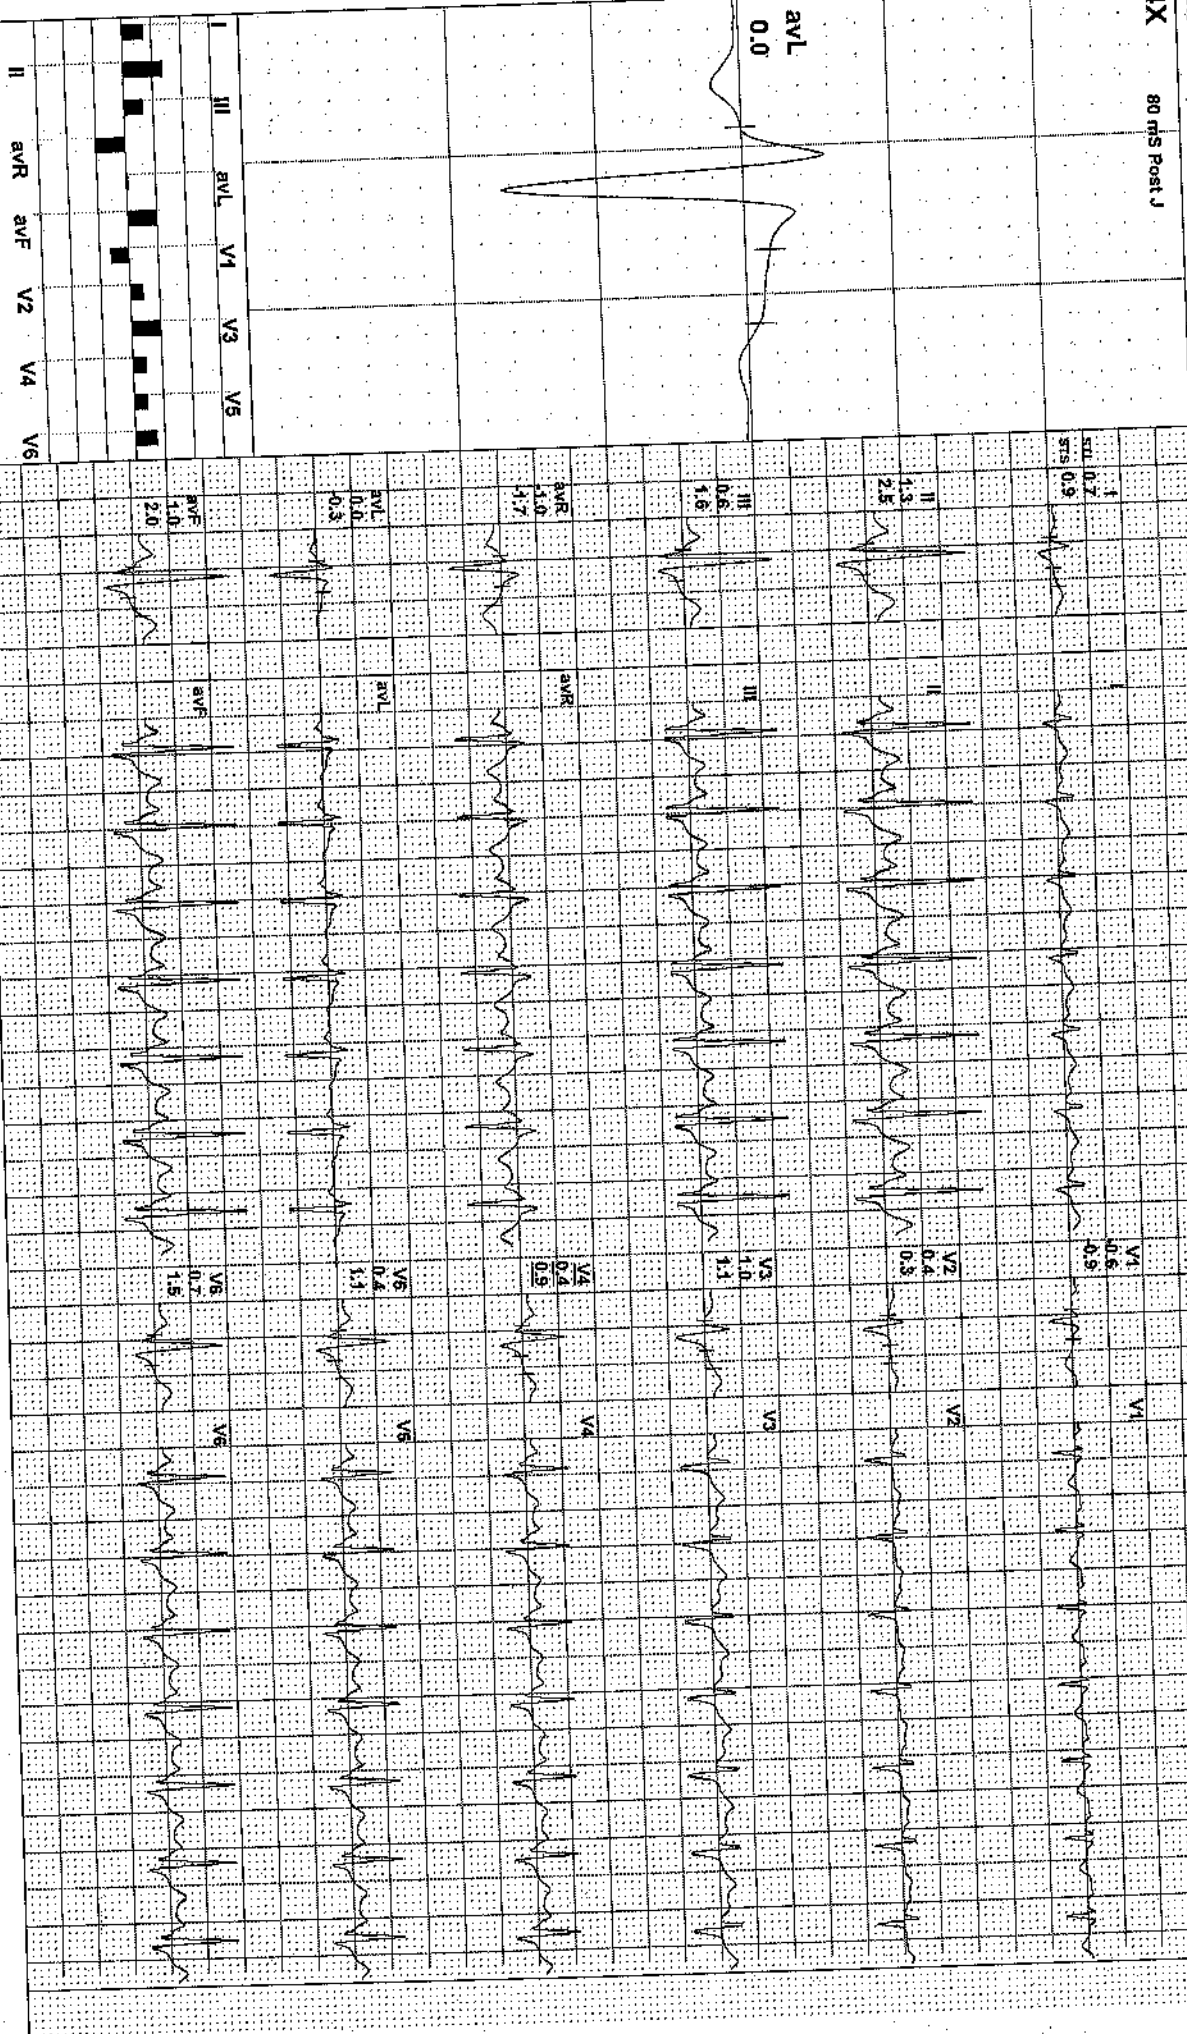 RX
80 mS Post J
avL
0.0
I
III
avL
V1
V3
V5
II
avR
avF
V2
V4
V6
I
STL 0.7
STS 0.9
I
V1
-0.6
-0.9
V1
II
1.3
2.5
II
V2
0.4
0.3
V2
III
0.6
1.6
III
V3
1.0
1.1
V3
avR
-1.0
-1.7
avR
V4
0.4
0.9
V4
avL
0.0
-0.3
avL
V5
0.4
1.1
V5
avF
1.0
2.0
avF
V6
0.7
1.5
V6